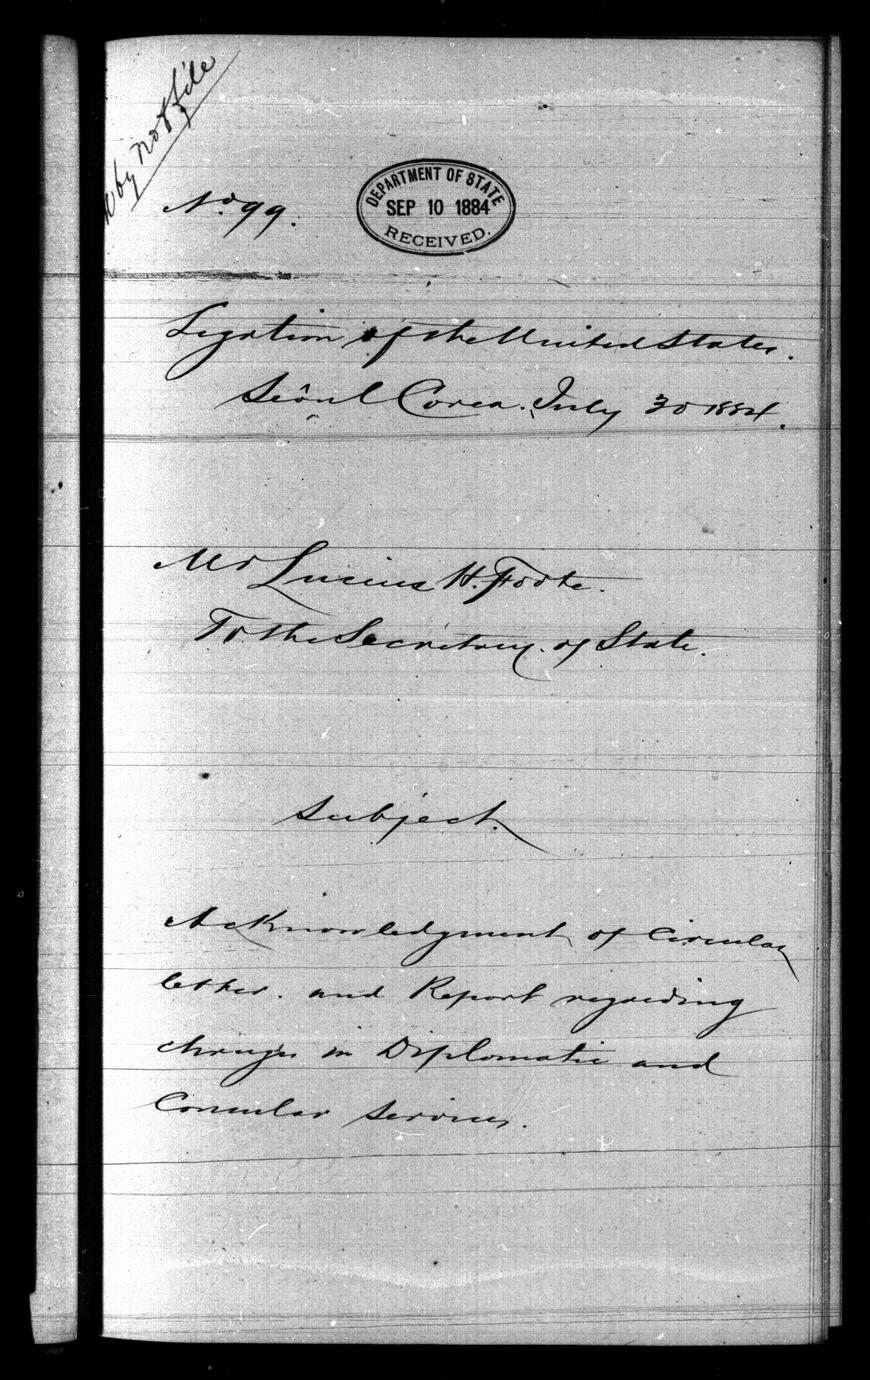 by not file
No. 99.
DEPARTMENT OF STATE
SEP 10 1884
RECEIVED.
Legation of the United States.
Seoul Corea. July 30 1884.
Mr Lucius H. Foote.
To the Secretary of State.
Subject.
Acknowledgment of Circular
letter. and Report regarding
changes in Diplomatic and
Consular service.